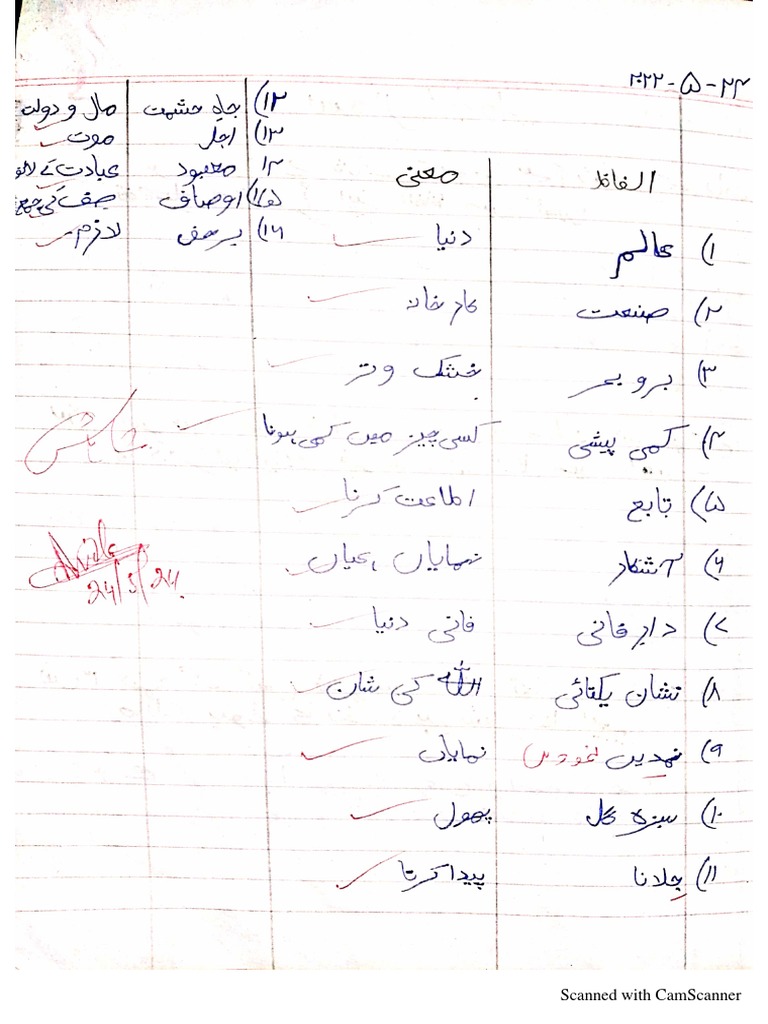 ۲۴-۵-۲۰۲۲
الفاظ معنی
۱) عالم دنیا
۲) صنعت کارخانہ
۳) برو بحر خشک و تر
۴) کمی پیشی کسی چیز میں کمی ہونا
۵) تابع اطاعت کرنا
۶) آشکار نمایاں، عیاں
۷) دارِ فانی فانی دنیا
۸) نشان یکتائی اللہ کی شان
۹) نمایاں
۱۰) سبزہ گل پھول
۱۱) جلانا پیدا کرنا
۱۲) جاہ حشمت مال و دولت
۱۳) اجل موت
۱۴ معبود عبادت کے
۱۵) اوصاف صف کی جمع
۱۶) برحق لازم
شاباش
24/5/24
Scanned with CamScanner